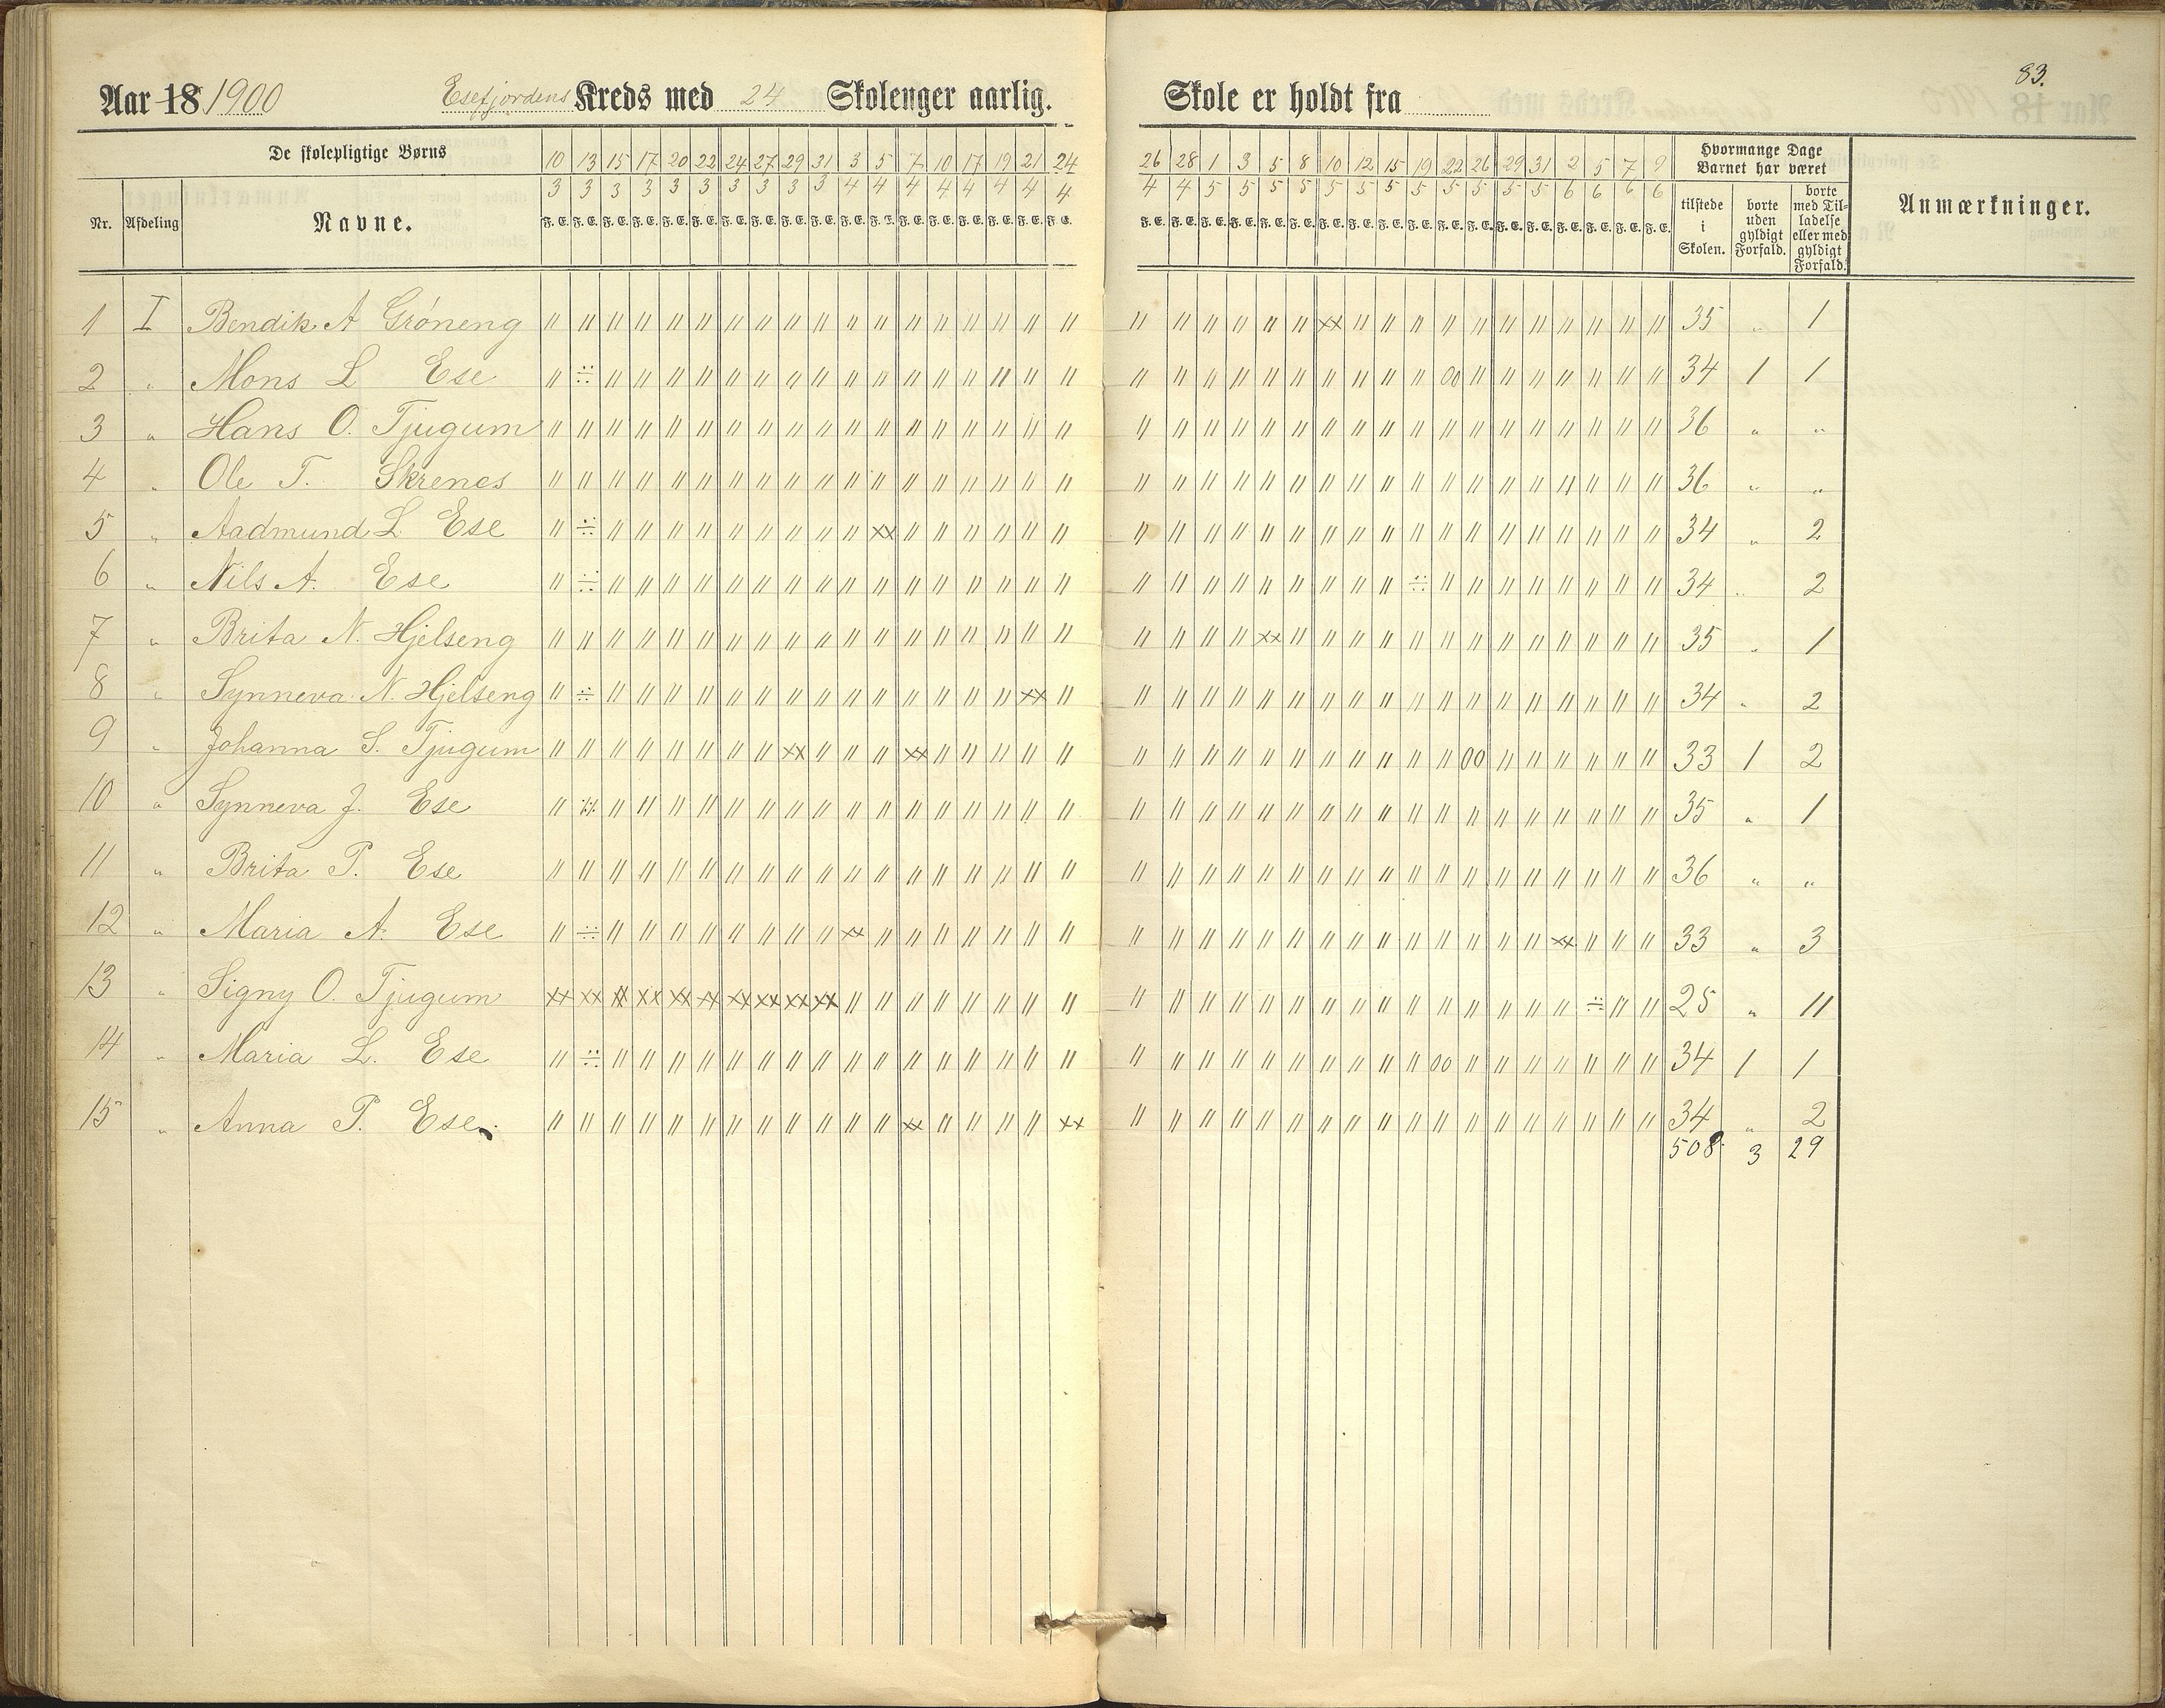 83.
Aar 18 1900 Esefjordens Kreds med 24 Skolenger aarlig. Skole er holdt fra
De skolepligtige Børns 10 13 15 17 20 22 24 27 29 31 3 5 7 10 17 19 21 24 26 28 1 3 5 8 10 12 15 19 22 26 29 31 2 5 7 9 Hvormange Dage Barnet har været
3 3 3 3 3 3 3 3 3 3 4 4 4 4 4 4 4 4 4 4 5 5 5 5 5 5 5 5 5 5 5 5 6 6 6 6
Nr. Afdeling Navne. F. E. F. E. F. E. F. E. F. E. F. E. F. E. F. E. F. E. F. E. F. E. F. E. F. E. F. E. F. E. F. E. F. E. F. E. F. E. F. E. F. E. F. E. F. E. F. E. F. E. F. E. F. E. F. E. F. E. F. E. F. E. F. E. F. E. F. E. F. E. F. E. tilstede i Skolen. borte uden gyldigt Forfald. borte med Til- ladelse eller med gyldigt Forfald. Anmærkninger.
1 I Bendik A Gróneng " " " " " " " " " " " " " " " " " " " " " " " " xx " " " " " " " " " " " 35 " 1
2 " Mons L Ese " ÷ " " " " " " " " " " " " " " " " " " " " " " " " " " 00 " " " " " " " 34 1 1
3 " Hans O. Tjugum " " " " " " " " " " " " " " " " " " " " " " " " " " " " " " " " " " " " 36 " "
4 " Ole T. Skrenes " " " " " " " " " " " " " " " " " " " " " " " " " " " " " " " " " " " " 36 " "
5 " Aadmund L Ese " ÷ " " " " " " " " " xx " " " " " " " " " " " " " " " " " " " " " " " " 34 " 2
6 " Nils A. Ese " ÷ " " " " " " " " " " " " " " " " " " " " " " " " " ÷ " " " " " " " " 34 " 2
7 " Brita N. Hjelseng " " " " " " " " " " " " " " " " " " " " " " xx " " " " " " " " " " " " " 35 " 1
8 " Synneva N. Hjelseng " ÷ " " " " " " " " " " " " " " xx " " " " " " " " " " " " " " " " " " " 34 " 2
9 " Johanna S. Tjugum " " " " " " " " xx " " " xx " " " " " " " " " " " " " " " " 00 " " " " " " 33 1 2
10 " Synneva J. Ese " ÷ " " " " " " " " " " " " " " " " " " " " " " " " " " " " " " " " " " 35 " 1
11 " Brita P. Ese " " " " " " " " " " " " " " " " " " " " " " " " " " " " " " " " " " " " 36 " "
12 " Maria A. Ese " ÷ " " " " " " " " xx " " " " " " " " " " " " " " " " " " " " " xx " " " 33 " 3
13 " Signy O. Tjugum xx xx xx xx xx xx xx xx xx xx " " " " " " " " " " " " " " " " " " " " " " " ÷ " " 25 " 11
14 " Maria L. Ese " ÷ " " " " " " " " " " " " " " " " " " " " " " " " " " 00 " " " " " " " 34 1 1
15 " Anna P. Ese. " " " " " " " " " " " " xx " " " " xx " " " " " " " " " " " " " " " " " " 34 " 2
508 3 29